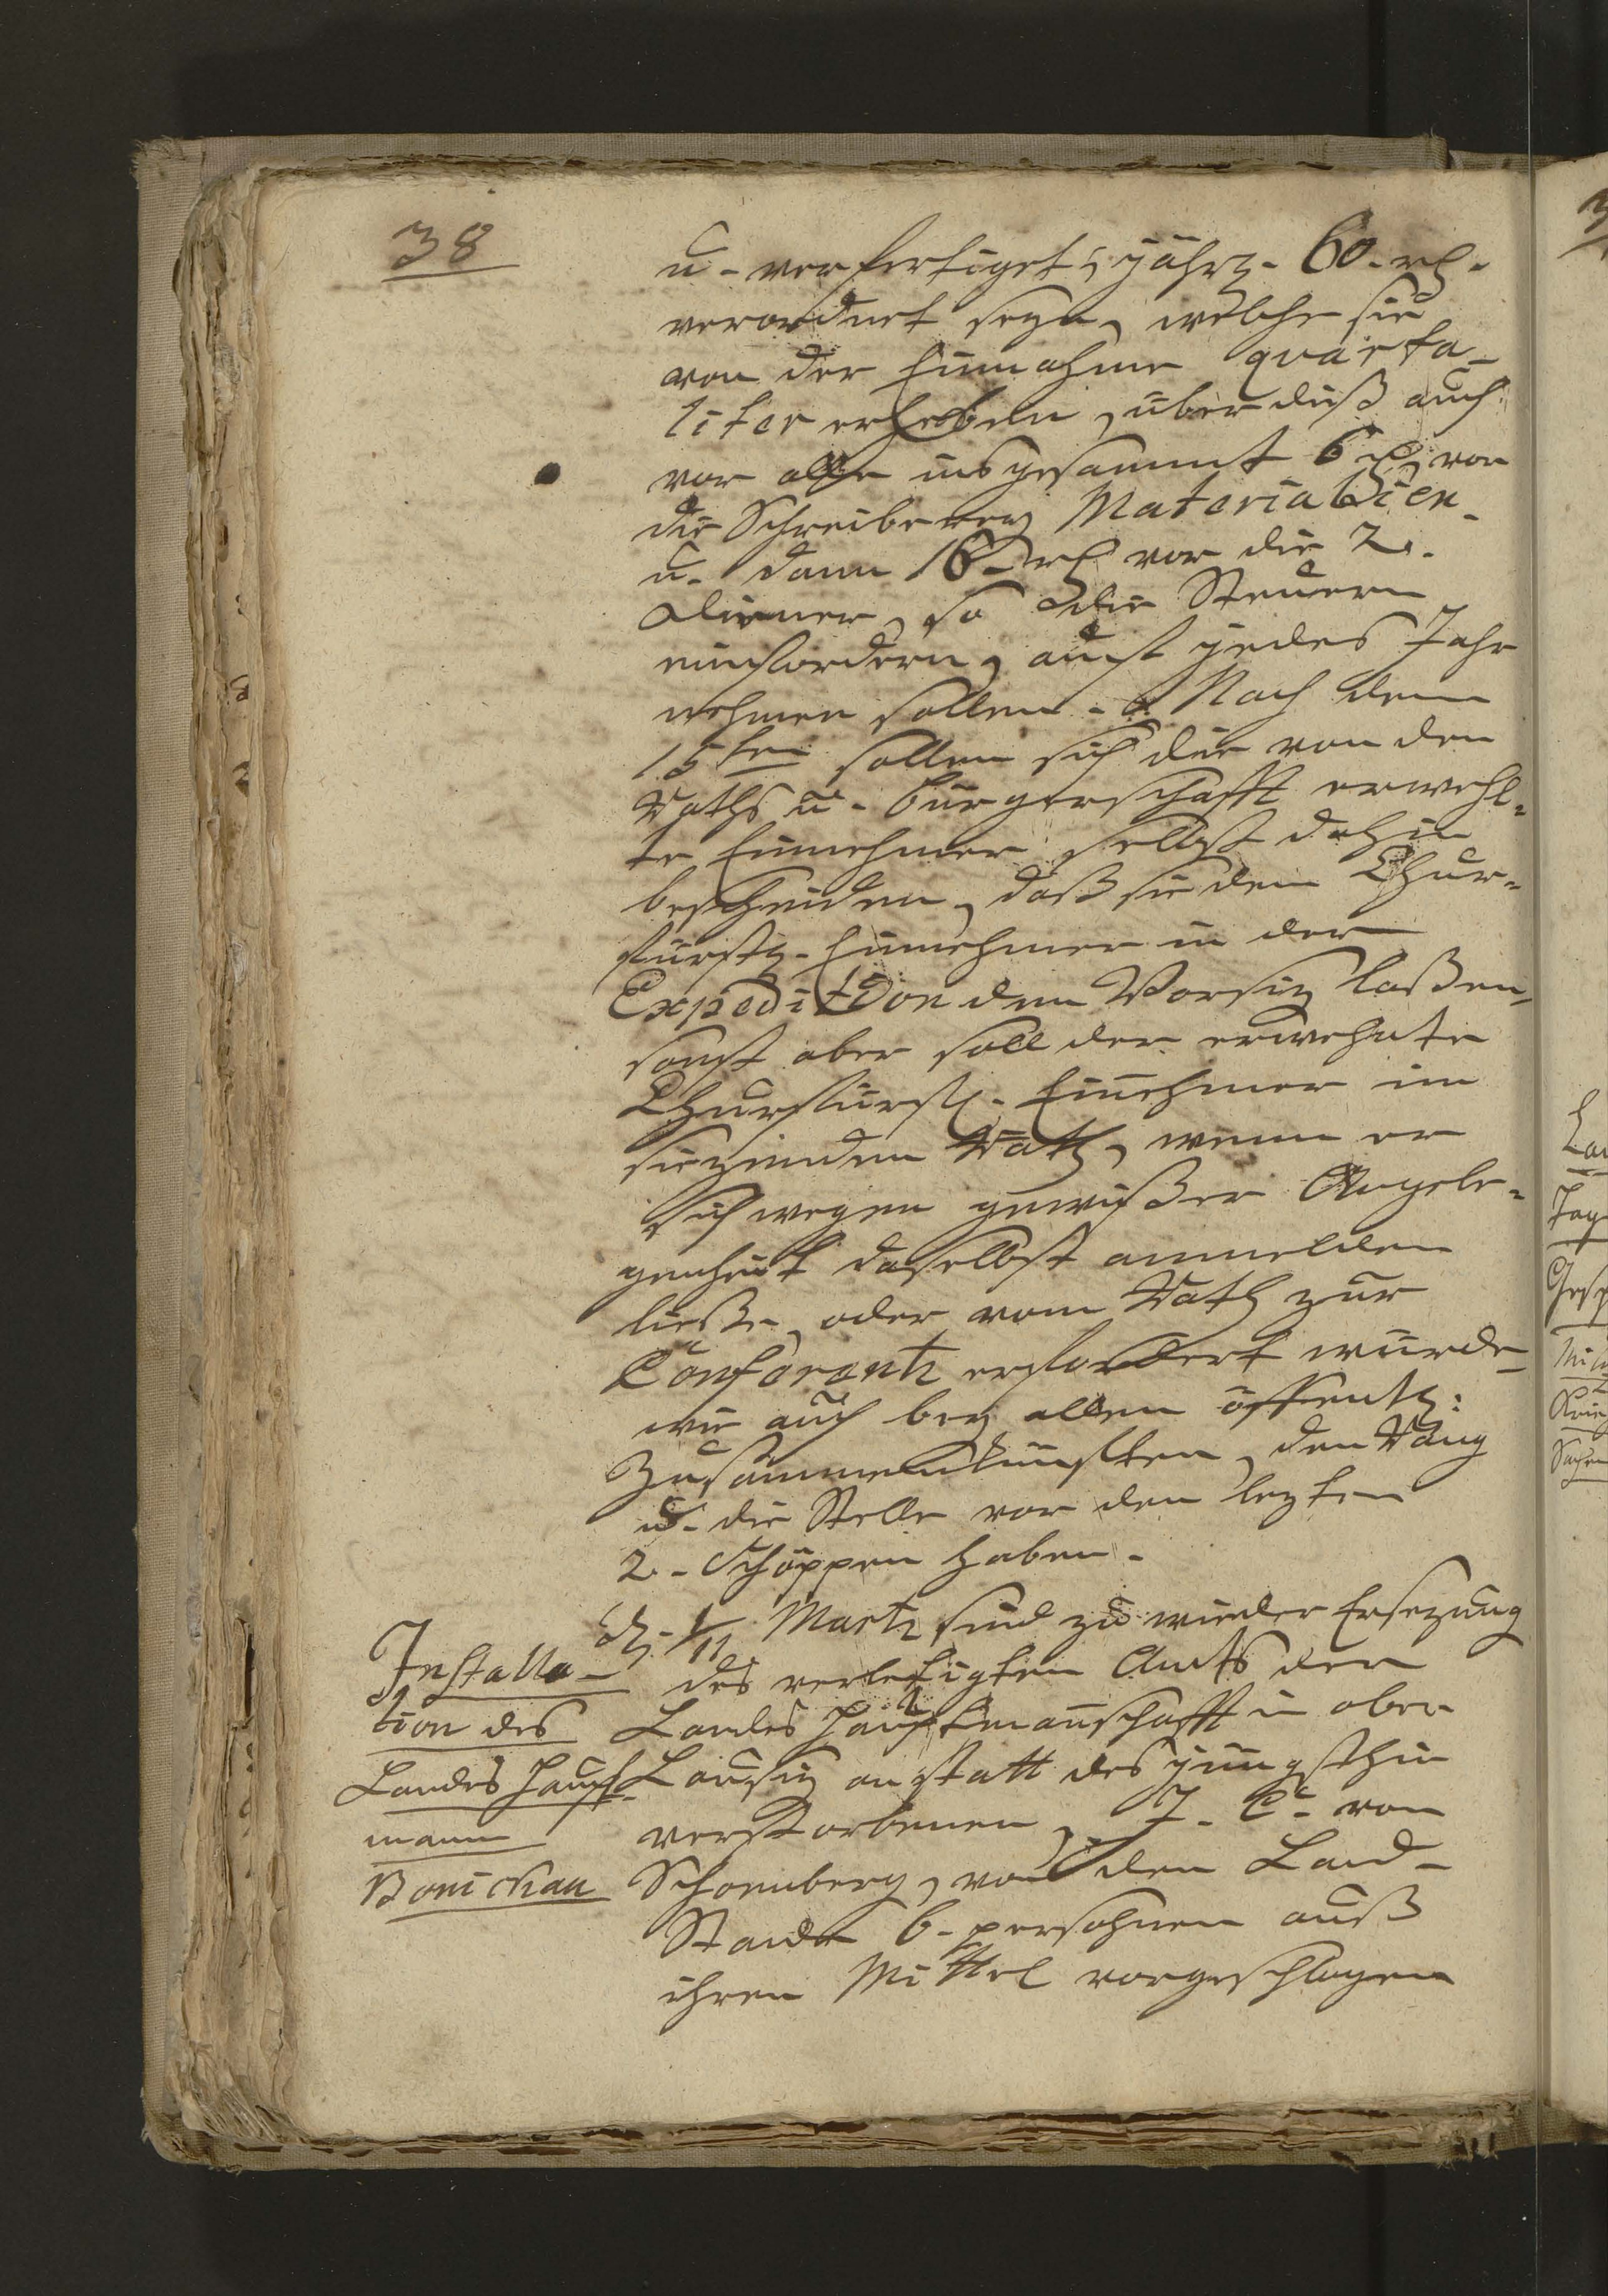 38
u. verfertiget, jährl. 60. rl.
verordnet seyn, welche sie
von der Einnahme quarta-
liter erheben, über diß auch
vor alle insgesammt 6 rl, vor
die Schreiberey Materialien
u. dann 16. rl vor die 2.
Diener, so die Steuern
einfordern, auch jedes Jahr
nehmen sollen. Nach dem
15ten sollen sich die von den
Raths u. Bürgerschafft erwehl-
te Einnehmer selbst dahin
bescheiden, daß sie dem Chur-
fürstl. Einnehmer in der
Expedition den Vorsiz laßen,
sonst aber soll der erwehnte
Churfürstl. Einnehmer im
sizenden Rath, wenn er
sich wegen gewißer Angele-
genheit daselbst anmelden
ließe, oder vom Rath zur
Conferentz erfordert würde,
wie auch bey allen öffentl:
Zusammenkünfften, den Rang
u. die Stelle vor den lezten
2. Schöppen haben.
Installa-
tion des
Landes Haupt-
mann
Bonickau
d. 1/11 Martz sind zu wieder Ersezung
des verledigten Amts der
Landes Hauptmanschafft in ober
Lausiz anstatt des jüngsthin
verstorbenen, J. C. von
Schoenberg, von den Land-
Stände 6. persohnen auß
ihren Mittel vorgeschlagen